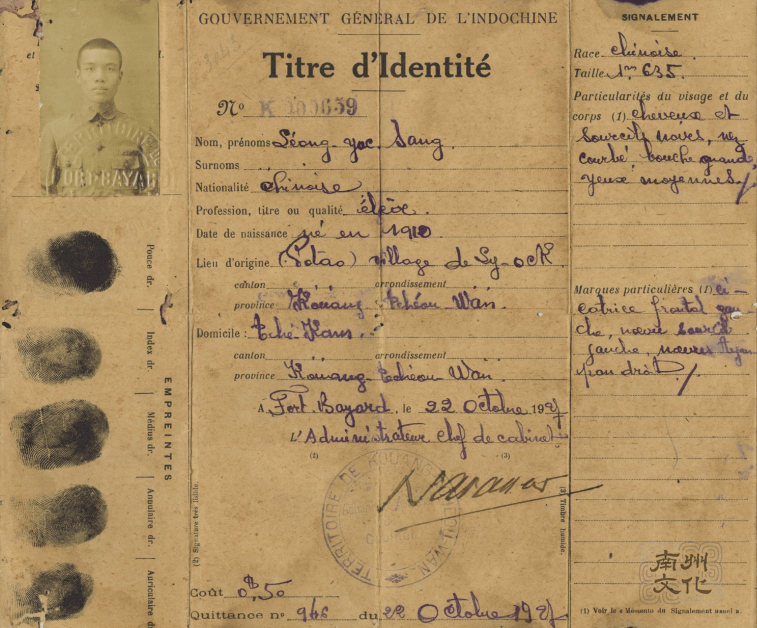 GOUVERNEMENT GÉNÉRAL DE L'INDOCHINE
Titre d'Identité
Nº K
Nom, prénoms Léong-yac Sang
Surnoms
Nationalité chinoise
Profession, titre ou qualité élève.
Date de naissance né en 1910
Lieu d'origine (Potao) village de Sy-ock
canton arrondissement
province Kouang-tchéou Wan.
Domicile : Tché Kam.
canton arrondissement
province Kouang-tchéou Wan.
A Fort Bayard, le 22 Octobre 1927
L'Administrateur chef de cabinet
(2) (3)
TERRITOIRE DE KOUANG TCHEOU WAN
Coût 0$,50
Quittance nº 946 du 22 Octobre 1927
FORT BAYARD
EMPREINTES
Pouce dr.
Index dr.
Médius dr.
Annulaire dr.
Auriculaire d
(3) Timbre humide.
SIGNALEMENT
Race chinoise.
Taille 1m 635.
Particularités du visage et du
corps (1) cheveux et
sourcils noirs, nez
courbé, bouche grande,
yeux moyennes
Marques particulières (1) ci-
catrice frontal gau-
che, nœvus
gauche, nœvus
droit
(1) Voir le « Mémento du Signalement usuel ».
南州
文化